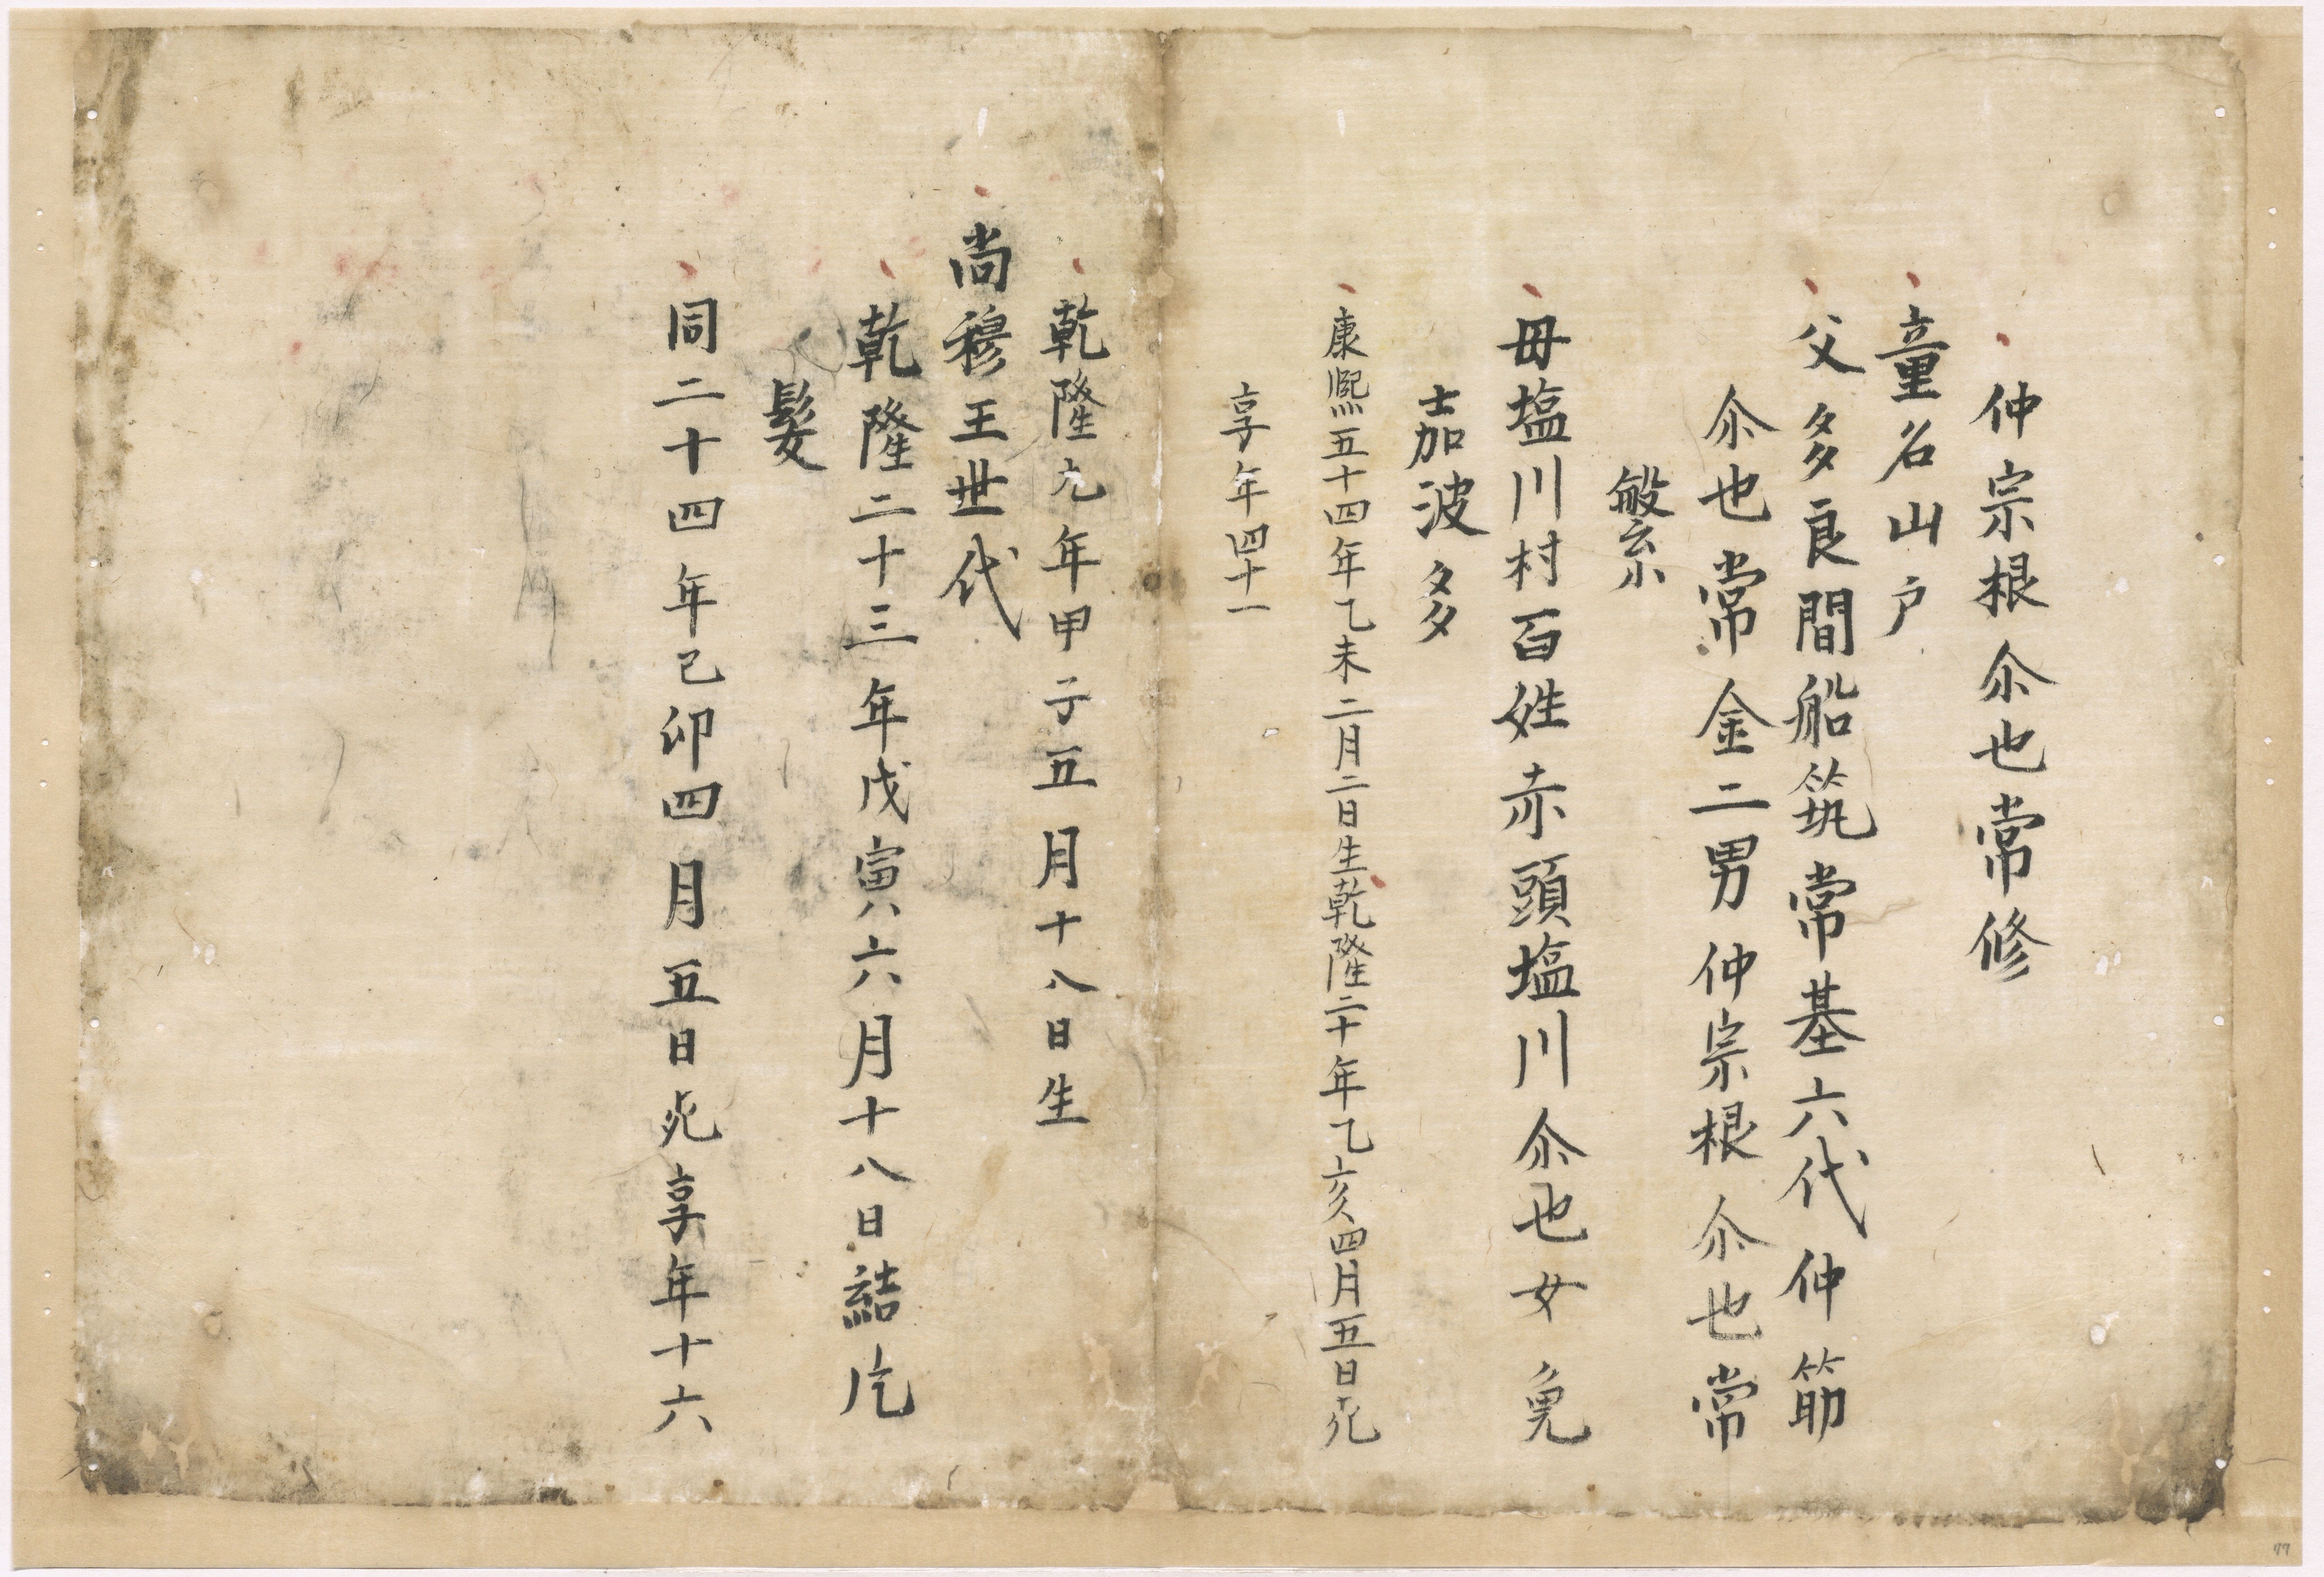 仲宗根尒也常修
童名山户
父多良間船筑常基六代仲筋
尒也常金二男仲宗根尒也常
繁
母塩川村百姓赤頭塩川尒也女免
嘉波多
康熈五十四年乙未二月二日生乾隆二十年乙亥四月五日死
享年四十一
乾隆九年甲子五月十八日生
尚穆王世代
乾隆二十三年戊寅六月十八日結片
髪
同二十四年己卯四月五日死享年十六
77